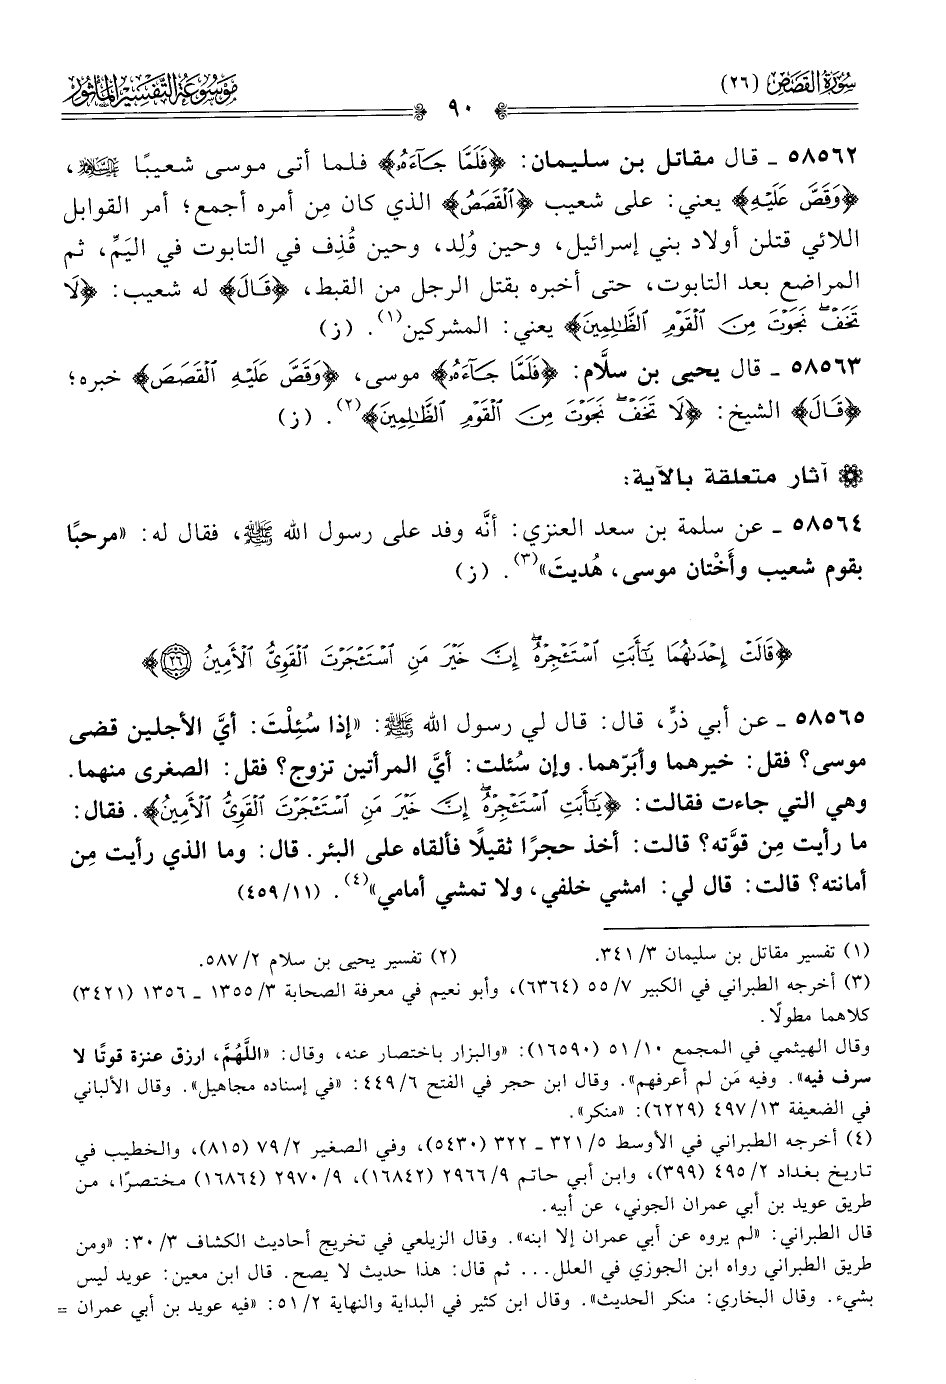 سُورَةُ القَصَصِ (٢٦)
٩٠
مَوْسُوعَة التَّفْسِيْر المَأثُور
٥٨٥٦٢ ـ قال مقاتل بن سليمان: ﴿فَلَمَّا جَآءَهُۥ﴾ فلما أتى موسى شعيبًا عليه السلام،
﴿وَقَصَّ عَلَيْهِ﴾ يعني: على شعيب ﴿ٱلْقَصَصَ﴾ الذي كان مِن أمره أجمع؛ أمر القوابل
اللائي قتلن أولاد بني إسرائيل، وحين وُلِد، وحين قُذِف في التابوت في اليَمِّ، ثم
المراضع بعد التابوت، حتى أخبره بقتل الرجل من القبط، ﴿قَالَ﴾ له شعيب: ﴿لَا
تَخَفْ ۖ نَجَوْتَ مِنَ ٱلْقَوْمِ ٱلظَّٰلِمِينَ﴾ يعني: المشركين(١). (ز)
٥٨٥٦٣ ـ قال يحيى بن سلَّام: ﴿فَلَمَّا جَآءَهُۥ﴾ موسى، ﴿وَقَصَّ عَلَيْهِ ٱلْقَصَصَ﴾ خبره؛
﴿قَالَ﴾ الشيخ: ﴿لَا تَخَفْ ۖ نَجَوْتَ مِنَ ٱلْقَوْمِ ٱلظَّٰلِمِينَ﴾(٢). (ز)
آثار متعلقة بالآية:
٥٨٥٦٤ ـ عن سلمة بن سعد العنزي: أنَّه وفد على رسول الله ﷺ، فقال له: «مرحبًا
بقوم شعيب وأَخْتان موسى، هُديتَ»(٣). (ز)
﴿قَالَتْ إِحْدَىٰهُمَا يَٰٓأَبَتِ ٱسْتَـْٔجِرْهُ ۖ إِنَّ خَيْرَ مَنِ ٱسْتَـْٔجَرْتَ ٱلْقَوِىُّ ٱلْأَمِينُ ٢٦﴾
٥٨٥٦٥ ـ عن أبي ذرٍّ، قال: قال لي رسول الله ﷺ: «إذا سُئِلْتَ: أيَّ الأجلين قضى
موسى؟ فقل: خيرهما وأبَرّهما. وإن سُئلت: أيَّ المرأتين تزوج؟ فقل: الصغرى منهما.
وهي التي جاءت فقالت: ﴿يَٰٓأَبَتِ ٱسْتَـْٔجِرْهُ ۖ إِنَّ خَيْرَ مَنِ ٱسْتَـْٔجَرْتَ ٱلْقَوِىُّ ٱلْأَمِينُ﴾. فقال:
ما رأيت مِن قوَّته؟ قالت: أخذ حجرًا ثقيلًا فألقاه على البئر. قال: وما الذي رأيت مِن
أمانته؟ قالت: قال لي: امشي خلفي، ولا تمشي أمامي»(٤). (١١/ ٤٥٩)
(١) تفسير مقاتل بن سليمان ٣/ ٣٤١. (٢) تفسير يحيى بن سلام ٢/ ٥٨٧.
(٣) أخرجه الطبراني في الكبير ٧/ ٥٥ (٦٣٦٤)، وأبو نعيم في معرفة الصحابة ٣/ ١٣٥٥ ـ ١٣٥٦ (٣٤٢١)
كلاهما مطولًا.
وقال الهيثمي في المجمع ١٠/ ٥١ (١٦٥٩٠): «والبزار باختصار عنه، وقال: «اللَّهُمَّ، ارزق عنزة قوتًا لا
سرف فيه». وفيه مَن لم أعرفهم». وقال ابن حجر في الفتح ٦/ ٤٤٩: «في إسناده مجاهيل». وقال الألباني
في الضعيفة ١٣/ ٤٩٧ (٦٢٢٩): «منكر».
(٤) أخرجه الطبراني في الأوسط ٥/ ٣٢١ ـ ٣٢٢ (٥٤٣٠)، وفي الصغير ٢/ ٧٩ (٨١٥)، والخطيب في
تاريخ بغداد ٢/ ٤٩٥ (٣٩٩)، وابن أبي حاتم ٩/ ٢٩٦٦ (١٦٨٤٢)، ٩/ ٢٩٧٠ (١٦٨٦٤) مختصرًا، من
طريق عويد بن أبي عمران الجوني، عن أبيه.
قال الطبراني: «لم يروه عن أبي عمران إلا ابنه». وقال الزيلعي في تخريج أحاديث الكشاف ٣/ ٣٠: «ومن
طريق الطبراني رواه ابن الجوزي في العلل... ثم قال: هذا حديث لا يصح. قال ابن معين: عويد ليس
بشيء. وقال البخاري: منكر الحديث». وقال ابن كثير في البداية والنهاية ٢/ ٥١: «فيه عويد بن أبي عمران =